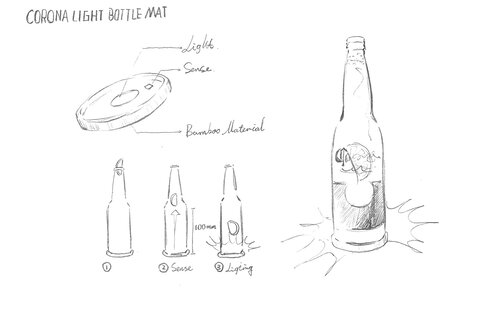 CORONA LIGHT BOTTLE MAT
Light
Sense
Bamboo Material
100mm
① ② Sense ③ Ligting